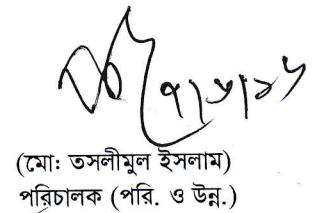 (মো: তসলীমুল ইসলাম)
পরিচালক (পরি. ও উন্ন.)